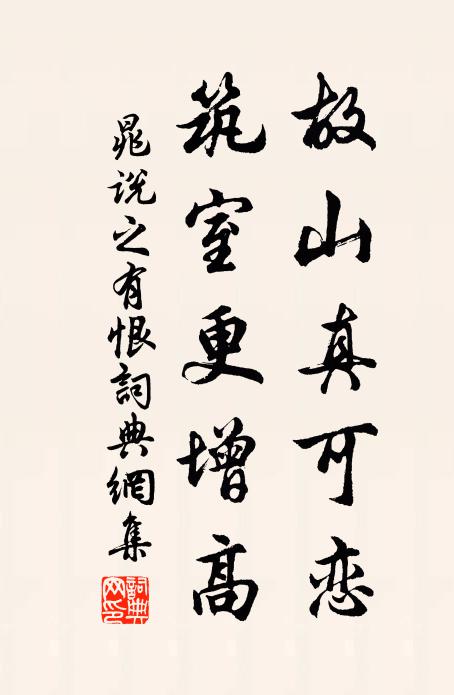 故山真可恋
筑室更增高
晁说之有恨詞典網集
詞典網印